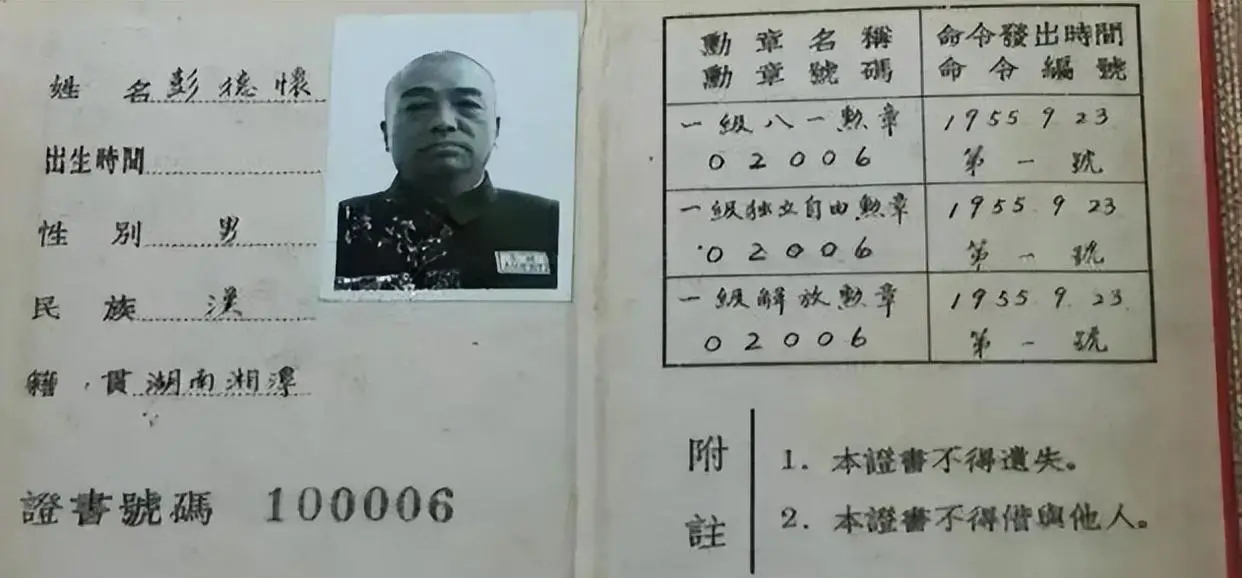 姓 名 彭德懷
出生時間
性 別 男
民 族 漢
籍 貫 湖南湘潭
證書號碼 100006
勳章名稱 命令發出時間
勳章號碼 命令編號
一級八一勲章 1955 9 23
02006 第一號
一級独立自由勲章 1955 9 23
02006 第一號
一級解放勲章 1955 9 23
02006 第一號
附註
1. 本證書不得遺失。
2. 本證書不得借與他人。